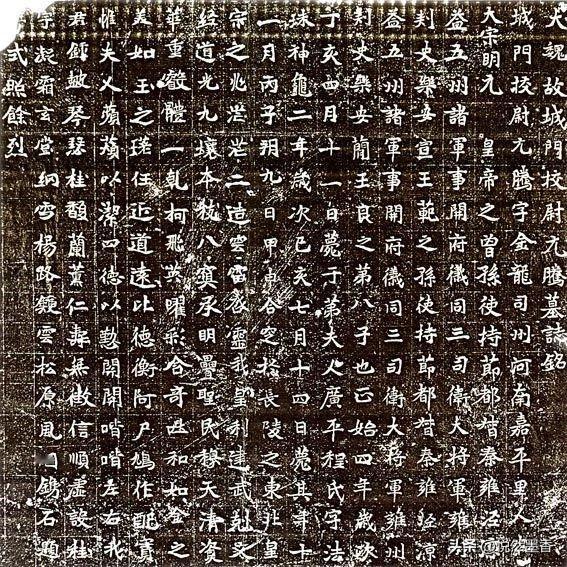 大魏故城門校尉元騰墓誌銘
城門校尉元騰字金龍司州河南嘉平里人
大宗明元皇帝之曾孫使持節都督秦雍涇涼
益五州諸軍事開府儀同三司衛大將軍雍州
刾史樂安宣王範之孫使持節都督秦雍涇涼
益五州諸軍事開府儀同三司衛大將軍雍州
刾史樂安簡王良之第八子也正始四年歲次
丁亥四月十一日薨于第夫人廣平程氏字法
珠神龜二年歲次己亥七月十四日薨其年十
一月丙子朔九日甲申合窆於長陵之東北皇
宗之兆茫茫二造雲雷啓靈我皇利建武剋文
經道光九壤本枝八寓承明疊聖民穆天清資
華重體一乾柯飛英曜彩合奇與和如金之
美如玉之瑳任近道遠比德衡阿尸鳩作配實
惟夫人蘋蘩以潔四德以懃誾誾喈喈左右我
君鍾鼓琴瑟桂馥蘭薰仁壽無徵信順虛設桂
宇凝霜玄堂納雪楊路鍾雲松原風鐫石題
式照餘烈
头条
墨香